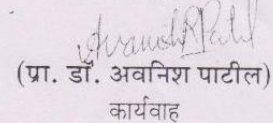 (प्रा. डॉ. अवनिश पाटील)
कार्यवाह